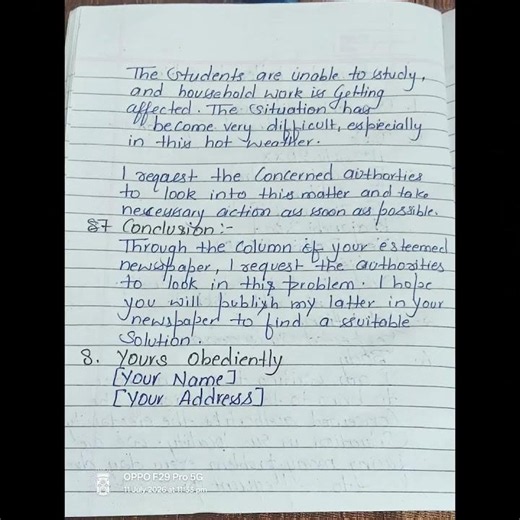 The Students are unable to study,
and household work is Getting
affected. The Situation has
become very difficult, especially
in this hot weather.
I reqaest the Concerned authorties
to look into this matter and take
necessary action as soon as possible.
7 Conclusion:-
Through the Column of your esteemed
newspaper, I request the authorities
to look in this problem. I hope
you will publish my latter in your
newspaper to find a suitable
Solution.
8. Yours Obediently
[Your Name]
[Your Address]
OPPO F29 Pro 5G
11 July 2026 at 11:36 pm